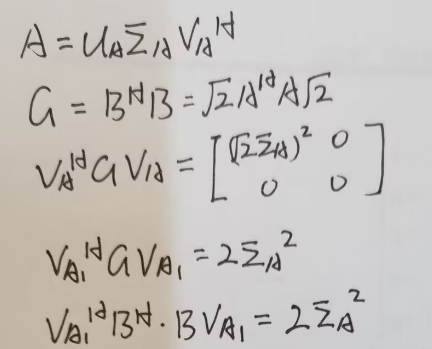 A = U_A Σ_A V_A^H
G = B^H B = √2 A^H A √2
V_A^H G V_A = [ (√2 Σ_A)^2 0 ; 0 0 ]
V_{A_1}^H G V_{A_1} = 2Σ_A^2
V_{A_1}^H B^H · B V_{A_1} = 2Σ_A^2